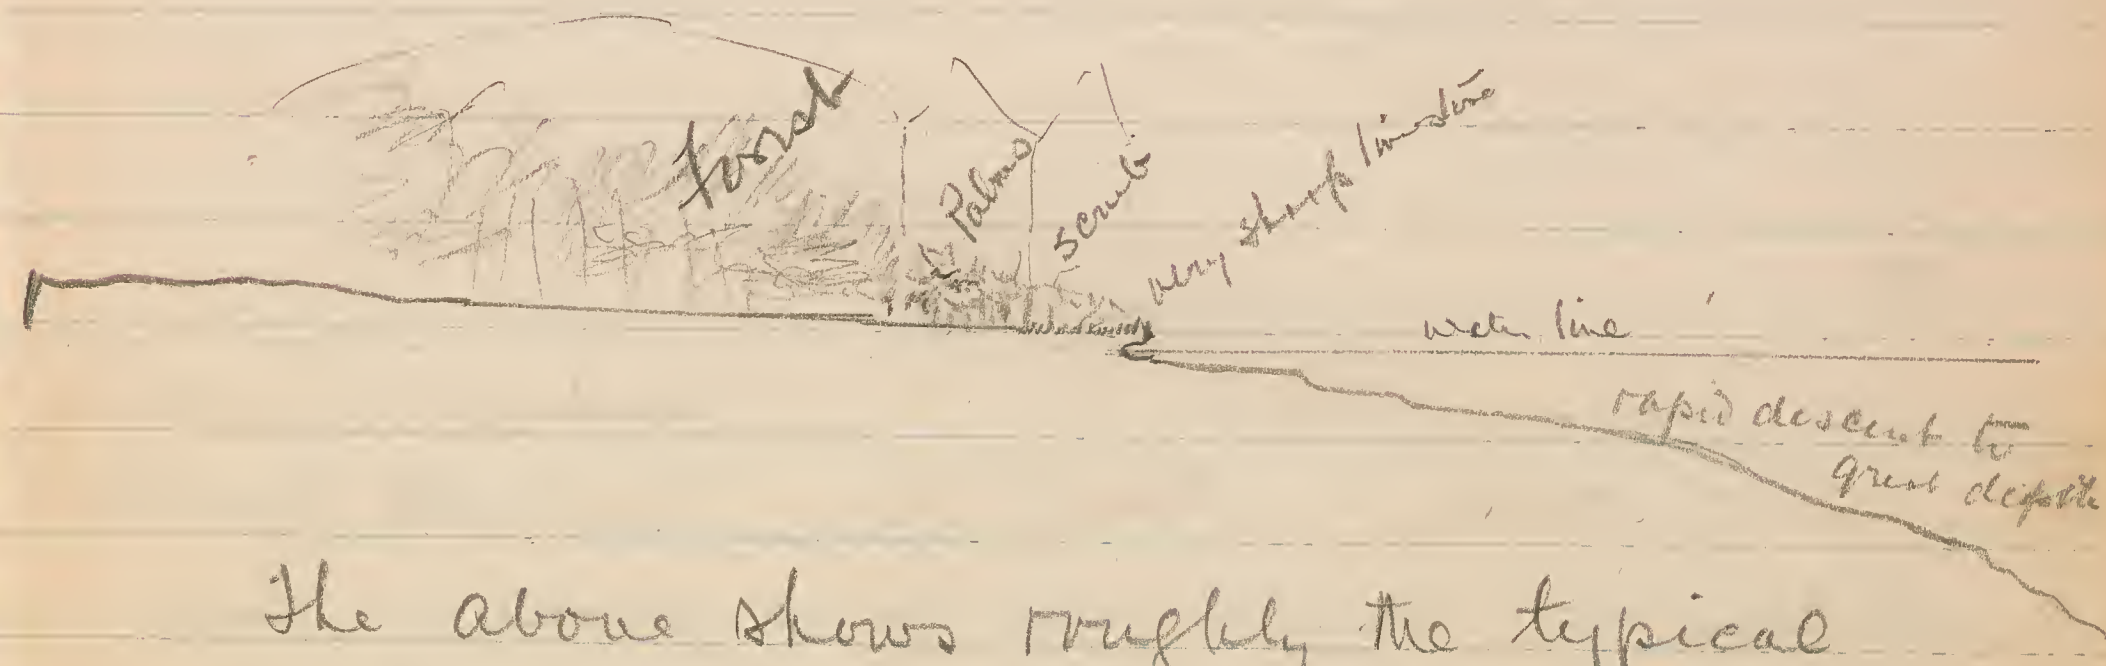 Forest
Palms
scrub
very sharp limestone
water line
rapid descent to
great depth
The above shows roughly the typical